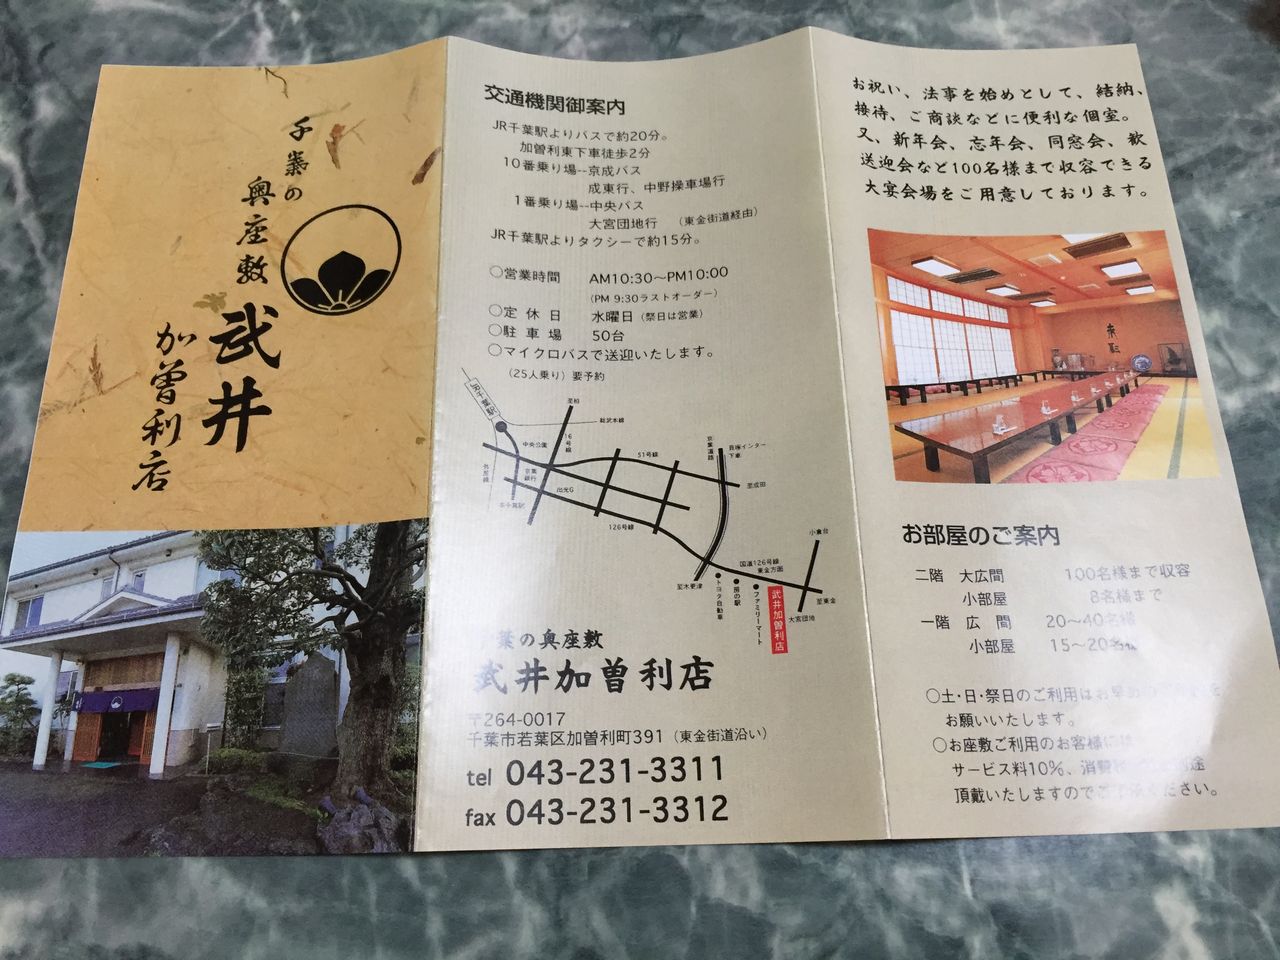 千葉の
奥座敷
武井
加曽利店
交通機関御案内
JR千葉駅よりバスで約20分。
加曽利東下車徒歩2分
10番乗り場--京成バス
成東行、中野操車場行
1番乗り場--中央バス
大宮団地行 (東金街道経由)
JR千葉駅よりタクシーで約15分。
○営業時間 AM10:30〜PM10:00
(PM 9:30ラストオーダー)
○定休日 水曜日(祭日は営業)
○駐車場 50台
○マイクロバスで送迎いたします。
(25人乗り)要予約
JR千葉駅
至柏
総武本線
16号線
中央公園
外房線
京葉銀行
本千葉駅
出光G
51号線
126号線
京葉道路
貝塚インター下車
至成田
至木更津
国道126号線
東金方面
小倉台
トヨタ自動車
房の駅
ファミリーマート
武井加曽利店
大宮団地
至東金
葉の奥座敷
武井加曽利店
〒264-0017
千葉市若葉区加曽利町391(東金街道沿い)
tel 043-231-3311
fax 043-231-3312
お祝い、法事を始めとして、結納、
接待、ご商談などに便利な個室。
又、新年会、忘年会、同窓会、歓
送迎会など100名様まで収容できる
大宴会場をご用意しております。
お部屋のご案内
二階 大広間 100名様まで収容
小部屋 8名様まで
一階 広間 20〜40名様
小部屋 15〜20名様
○土・日・祭日のご利用はお早めのご予約を
お願いいたします。
○お座敷ご利用のお客様には
サービス料10%、消費 別途
頂戴いたしますのでご了承ください。